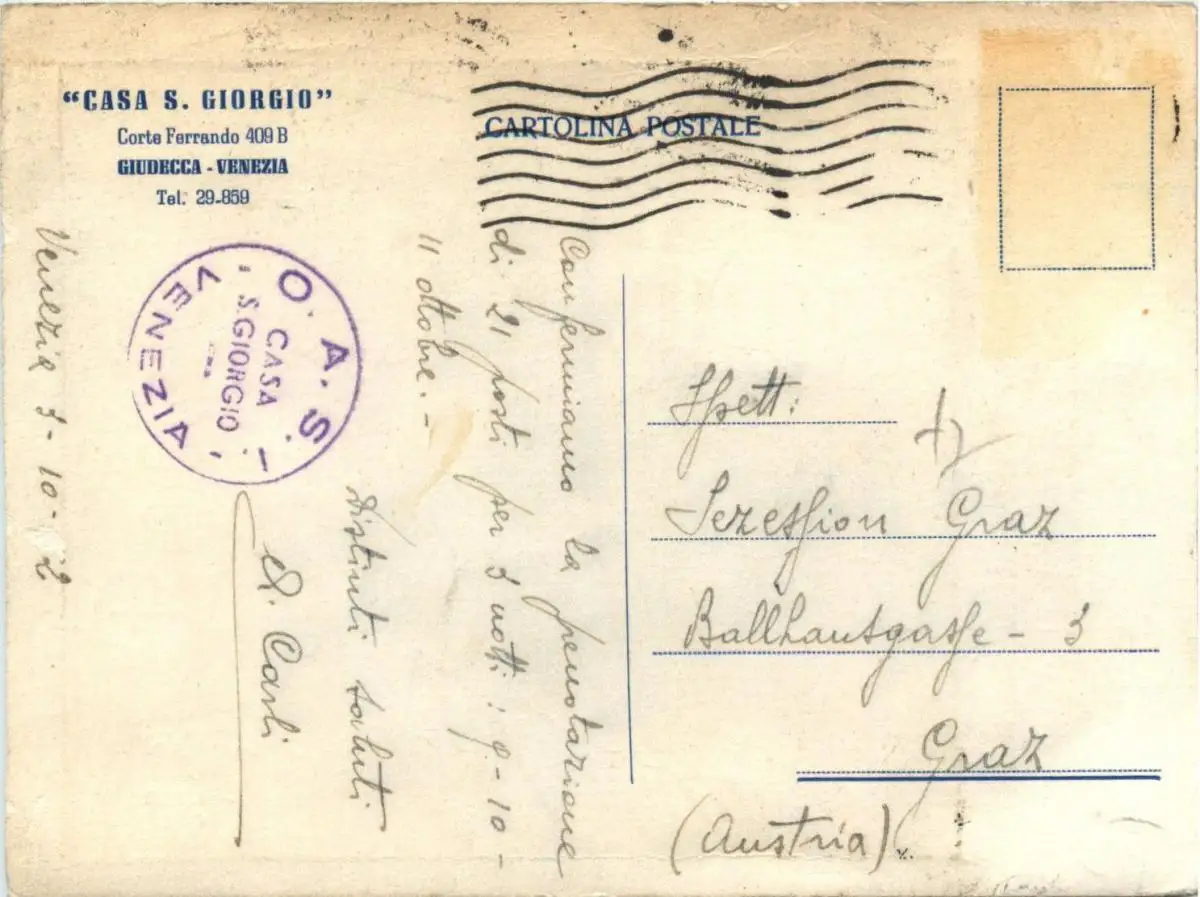 “CASA S. GIORGIO”
Corte Ferrando 409 B
GIUDECCA - VENEZIA
Tel. 29-859
CARTOLINA POSTALE
O. A. S. I.
VENEZIA
CASA
S. GIORGIO
Venezia 3-10-2
Confermiamo la prenotazione
di 21 posti per 3 notti: 9-10-
11 ottobre.-
Distinti saluti
Carli
Spett:
Sezession Graz
Ballhausgasse - 3
Graz
(Austria).